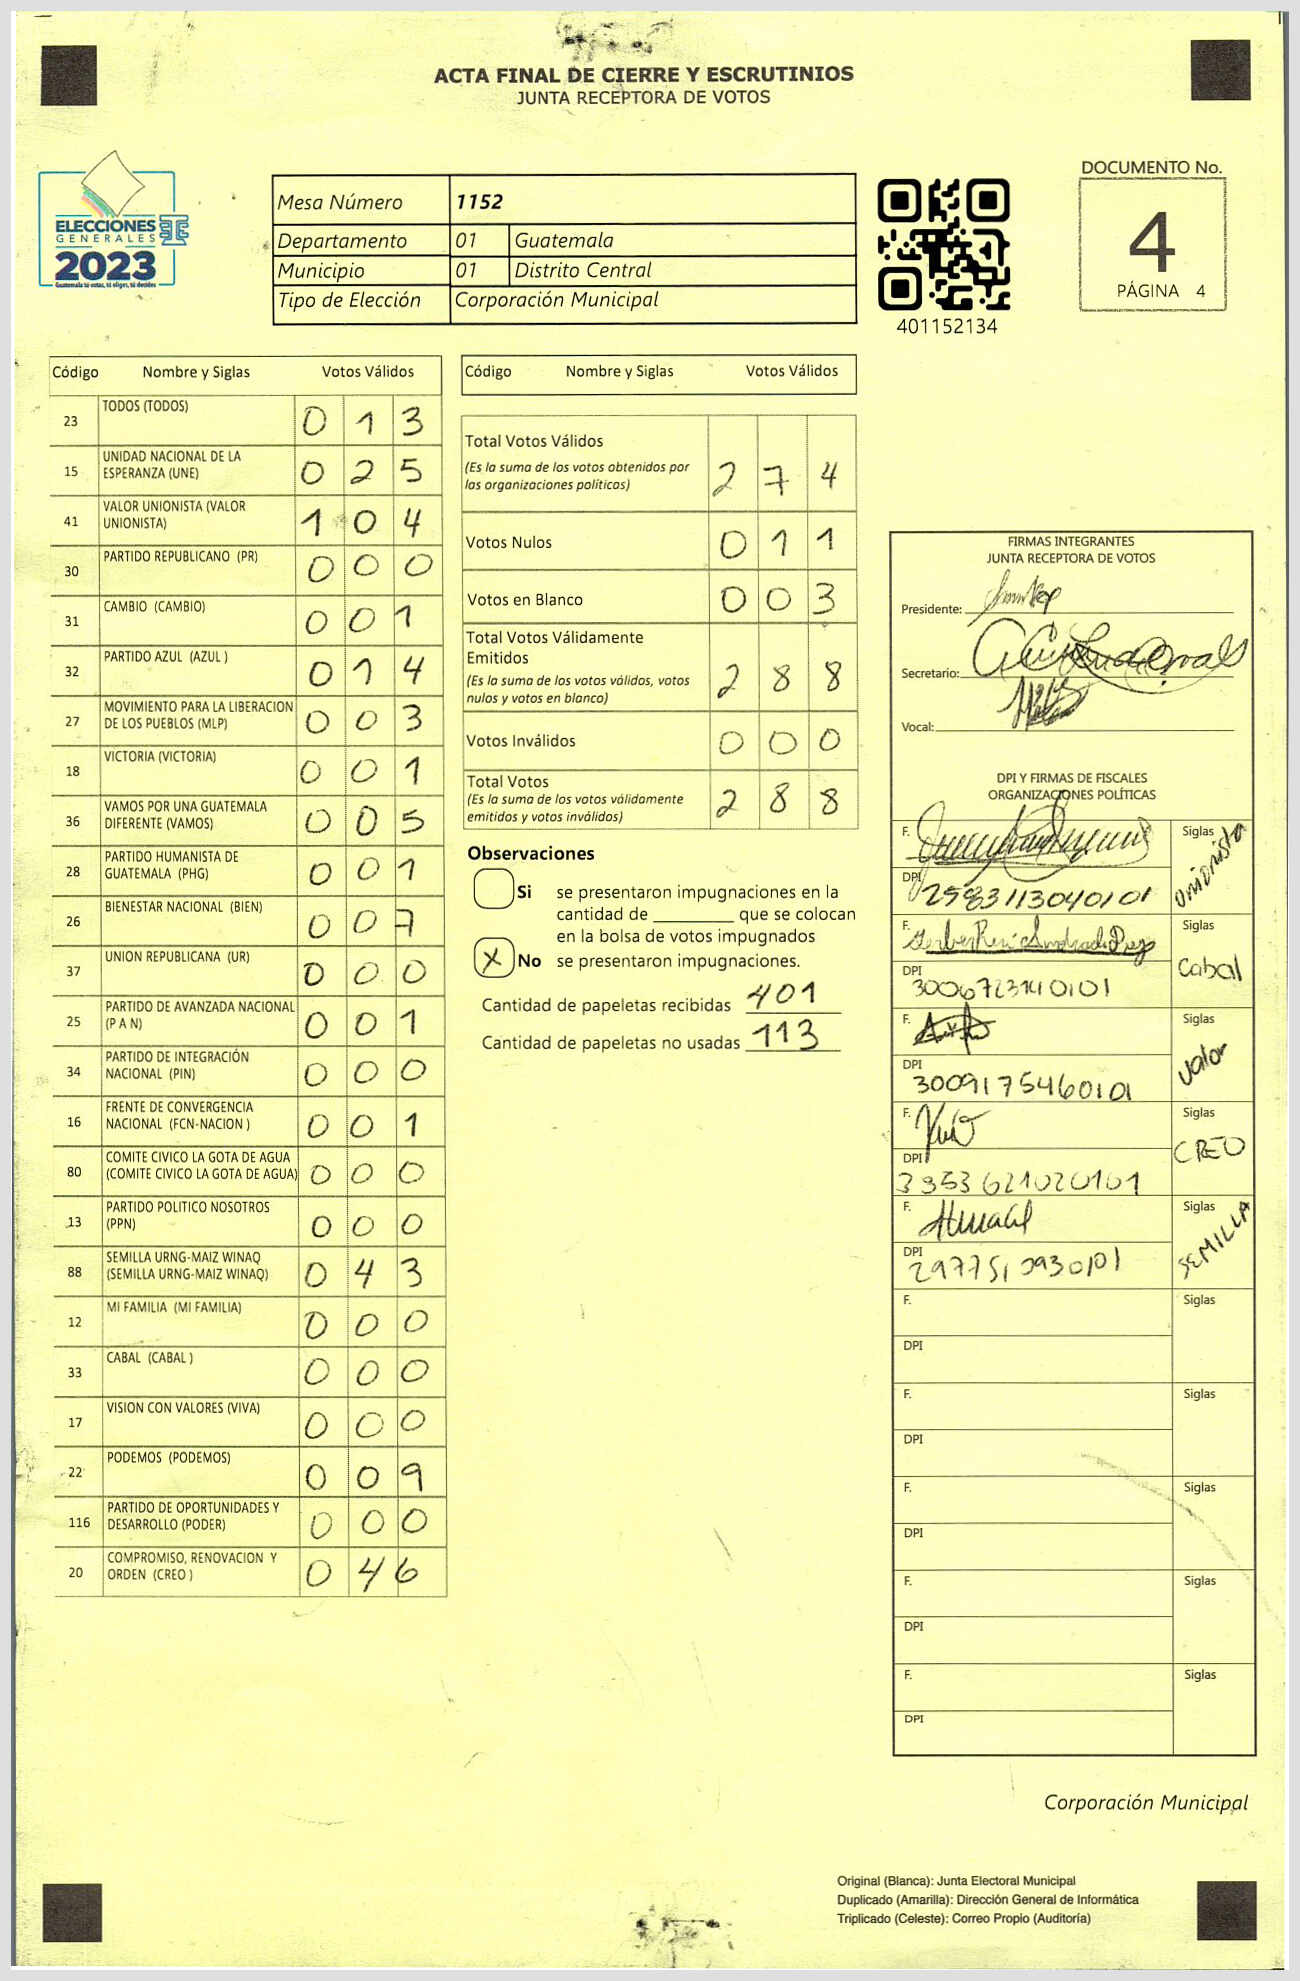 ACTA FINAL DE CIERRE Y ESCRUTINIOS
JUNTA RECEPTORA DE VOTOS
ELECCIONES
GENERALES
2023
Guatemala tú votas, tú eliges, tú decides
Mesa Número 1152
Departamento 01 Guatemala
Municipio 01 Distrito Central
Tipo de Elección Corporación Municipal
401152134
DOCUMENTO No.
4
PÁGINA 4
Código Nombre y Siglas Votos Válidos
23 TODOS (TODOS) 0 1 3
15 UNIDAD NACIONAL DE LA
ESPERANZA (UNE) 0 2 5
41 VALOR UNIONISTA (VALOR
UNIONISTA) 1 0 4
30 PARTIDO REPUBLICANO (PR) 0 0 0
31 CAMBIO (CAMBIO) 0 0 1
32 PARTIDO AZUL (AZUL ) 0 1 4
27 MOVIMIENTO PARA LA LIBERACION
DE LOS PUEBLOS (MLP) 0 0 3
18 VICTORIA (VICTORIA) 0 0 1
36 VAMOS POR UNA GUATEMALA
DIFERENTE (VAMOS) 0 0 5
28 PARTIDO HUMANISTA DE
GUATEMALA (PHG) 0 0 1
26 BIENESTAR NACIONAL (BIEN) 0 0 7
37 UNION REPUBLICANA (UR) 0 0 0
25 PARTIDO DE AVANZADA NACIONAL
(P A N) 0 0 1
34 PARTIDO DE INTEGRACIÓN
NACIONAL (PIN) 0 0 0
16 FRENTE DE CONVERGENCIA
NACIONAL (FCN-NACION ) 0 0 1
80 COMITE CIVICO LA GOTA DE AGUA
(COMITE CIVICO LA GOTA DE AGUA) 0 0 0
13 PARTIDO POLITICO NOSOTROS
(PPN) 0 0 0
88 SEMILLA URNG-MAIZ WINAQ
(SEMILLA URNG-MAIZ WINAQ) 0 4 3
12 MI FAMILIA (MI FAMILIA) 0 0 0
33 CABAL (CABAL ) 0 0 0
17 VISION CON VALORES (VIVA) 0 0 0
22 PODEMOS (PODEMOS) 0 0 9
116 PARTIDO DE OPORTUNIDADES Y
DESARROLLO (PODER) 0 0 0
20 COMPROMISO, RENOVACION Y
ORDEN (CREO ) 0 4 6
Código Nombre y Siglas Votos Válidos
Total Votos Válidos
(Es la suma de los votos obtenidos por
las organizaciones políticas) 2 7 4
Votos Nulos 0 1 1
Votos en Blanco 0 0 3
Total Votos Válidamente
Emitidos
(Es la suma de los votos válidos, votos
nulos y votos en blanco) 2 8 8
Votos Inválidos 0 0 0
Total Votos
(Es la suma de los votos válidamente
emitidos y votos inválidos) 2 8 8
Observaciones
Si se presentaron impugnaciones en la
cantidad de ________ que se colocan
en la bolsa de votos impugnados
X No se presentaron impugnaciones.
Cantidad de papeletas recibidas 401
Cantidad de papeletas no usadas 113
FIRMAS INTEGRANTES
JUNTA RECEPTORA DE VOTOS
Presidente:
Secretario:
Vocal:
DPI Y FIRMAS DE FISCALES
ORGANIZACIONES POLÍTICAS
F. Siglas Unionista
DPI 2583113040101
F. Siglas Cabal
DPI
F. Siglas Valor
DPI 3009175460101
F. Siglas CREO
DPI 3353621020101
F. Siglas SEMILLA
DPI
F. Siglas
DPI
F. Siglas
DPI
F. Siglas
DPI
F. Siglas
DPI
F. Siglas
DPI
Corporación Municipal
Original (Blanca): Junta Electoral Municipal
Duplicado (Amarilla): Dirección General de Informática
Triplicado (Celeste): Correo Propio (Auditoría)